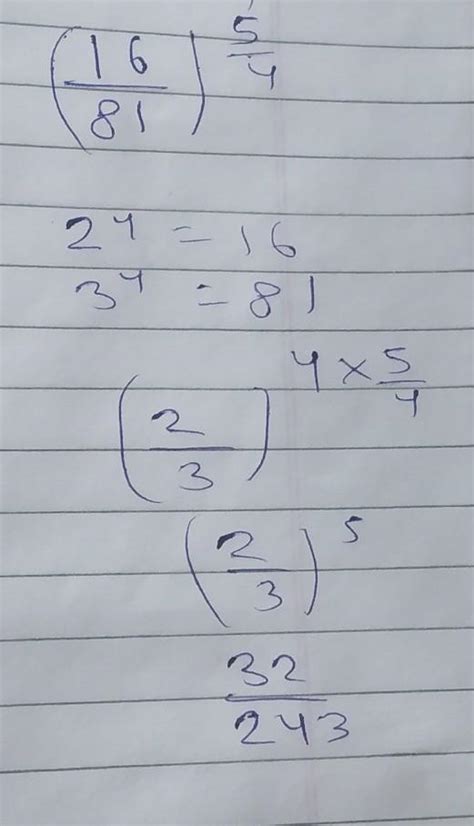 (16/81)^5/4
2^4 = 16
3^4 = 81
(2/3)^4×5/4
(2/3)^5
32/243